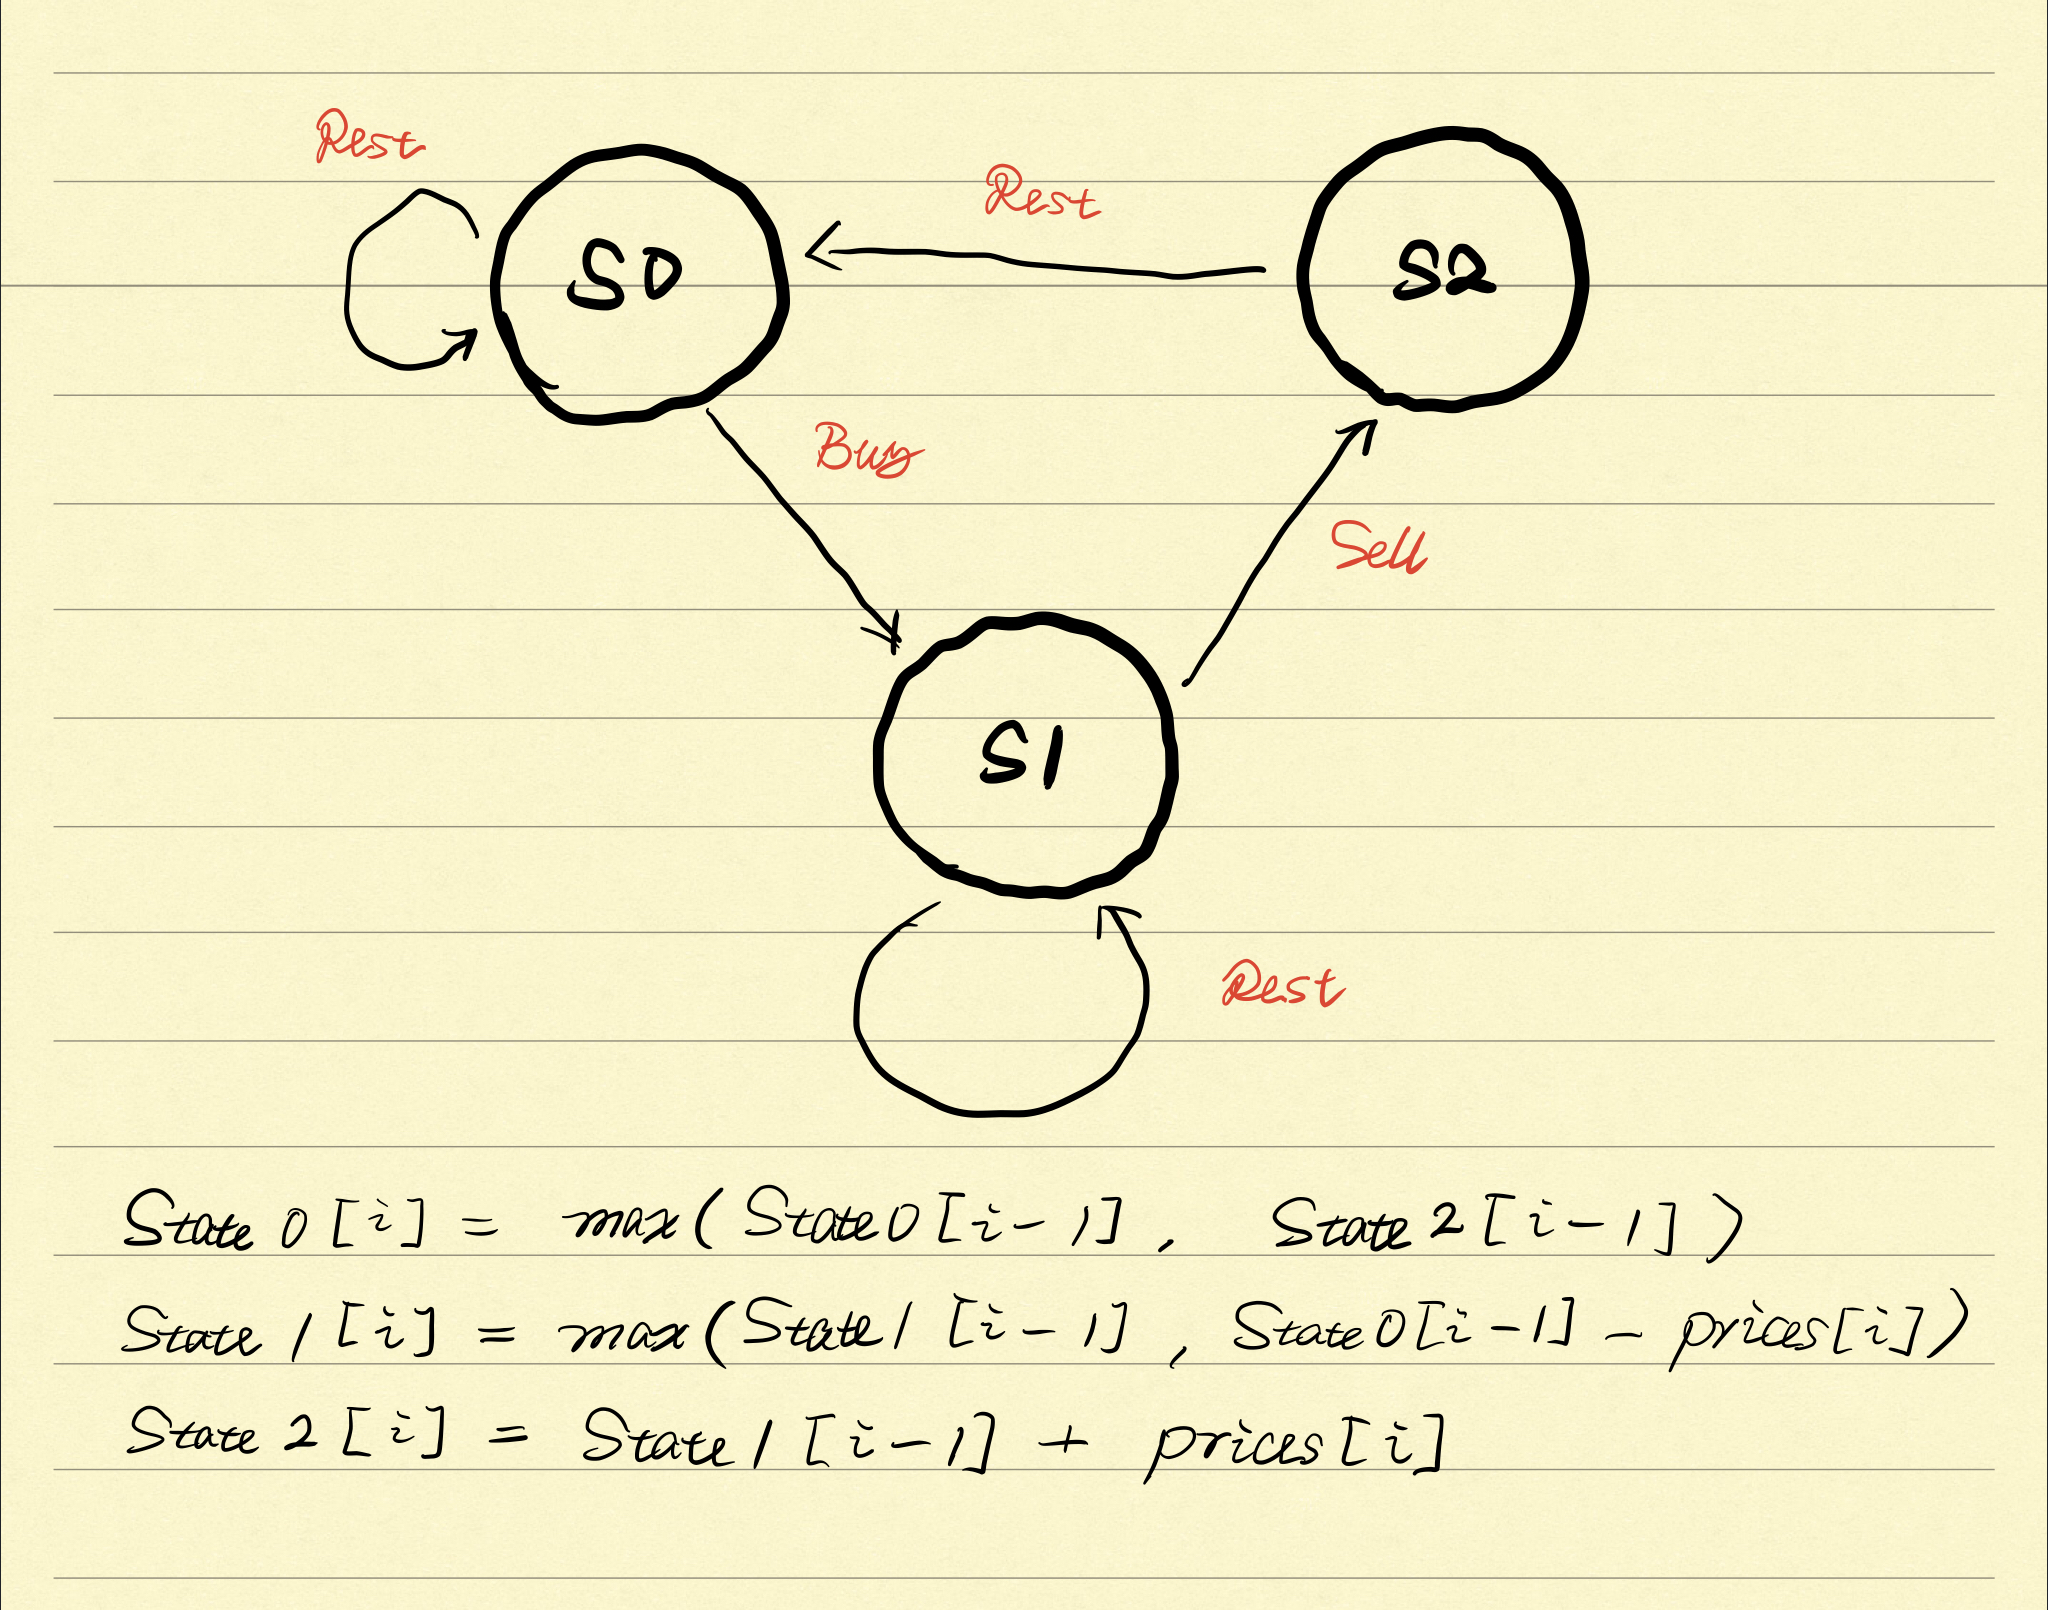 Rest
Rest
S0
S2
Buy
Sell
S1
Rest
State 0 [i] = max( State 0 [i-1], State 2 [i-1] )
State 1 [i] = max( State 1 [i-1], State 0 [i-1] - prices[i] )
State 2 [i] = State 1 [i-1] + prices[i]